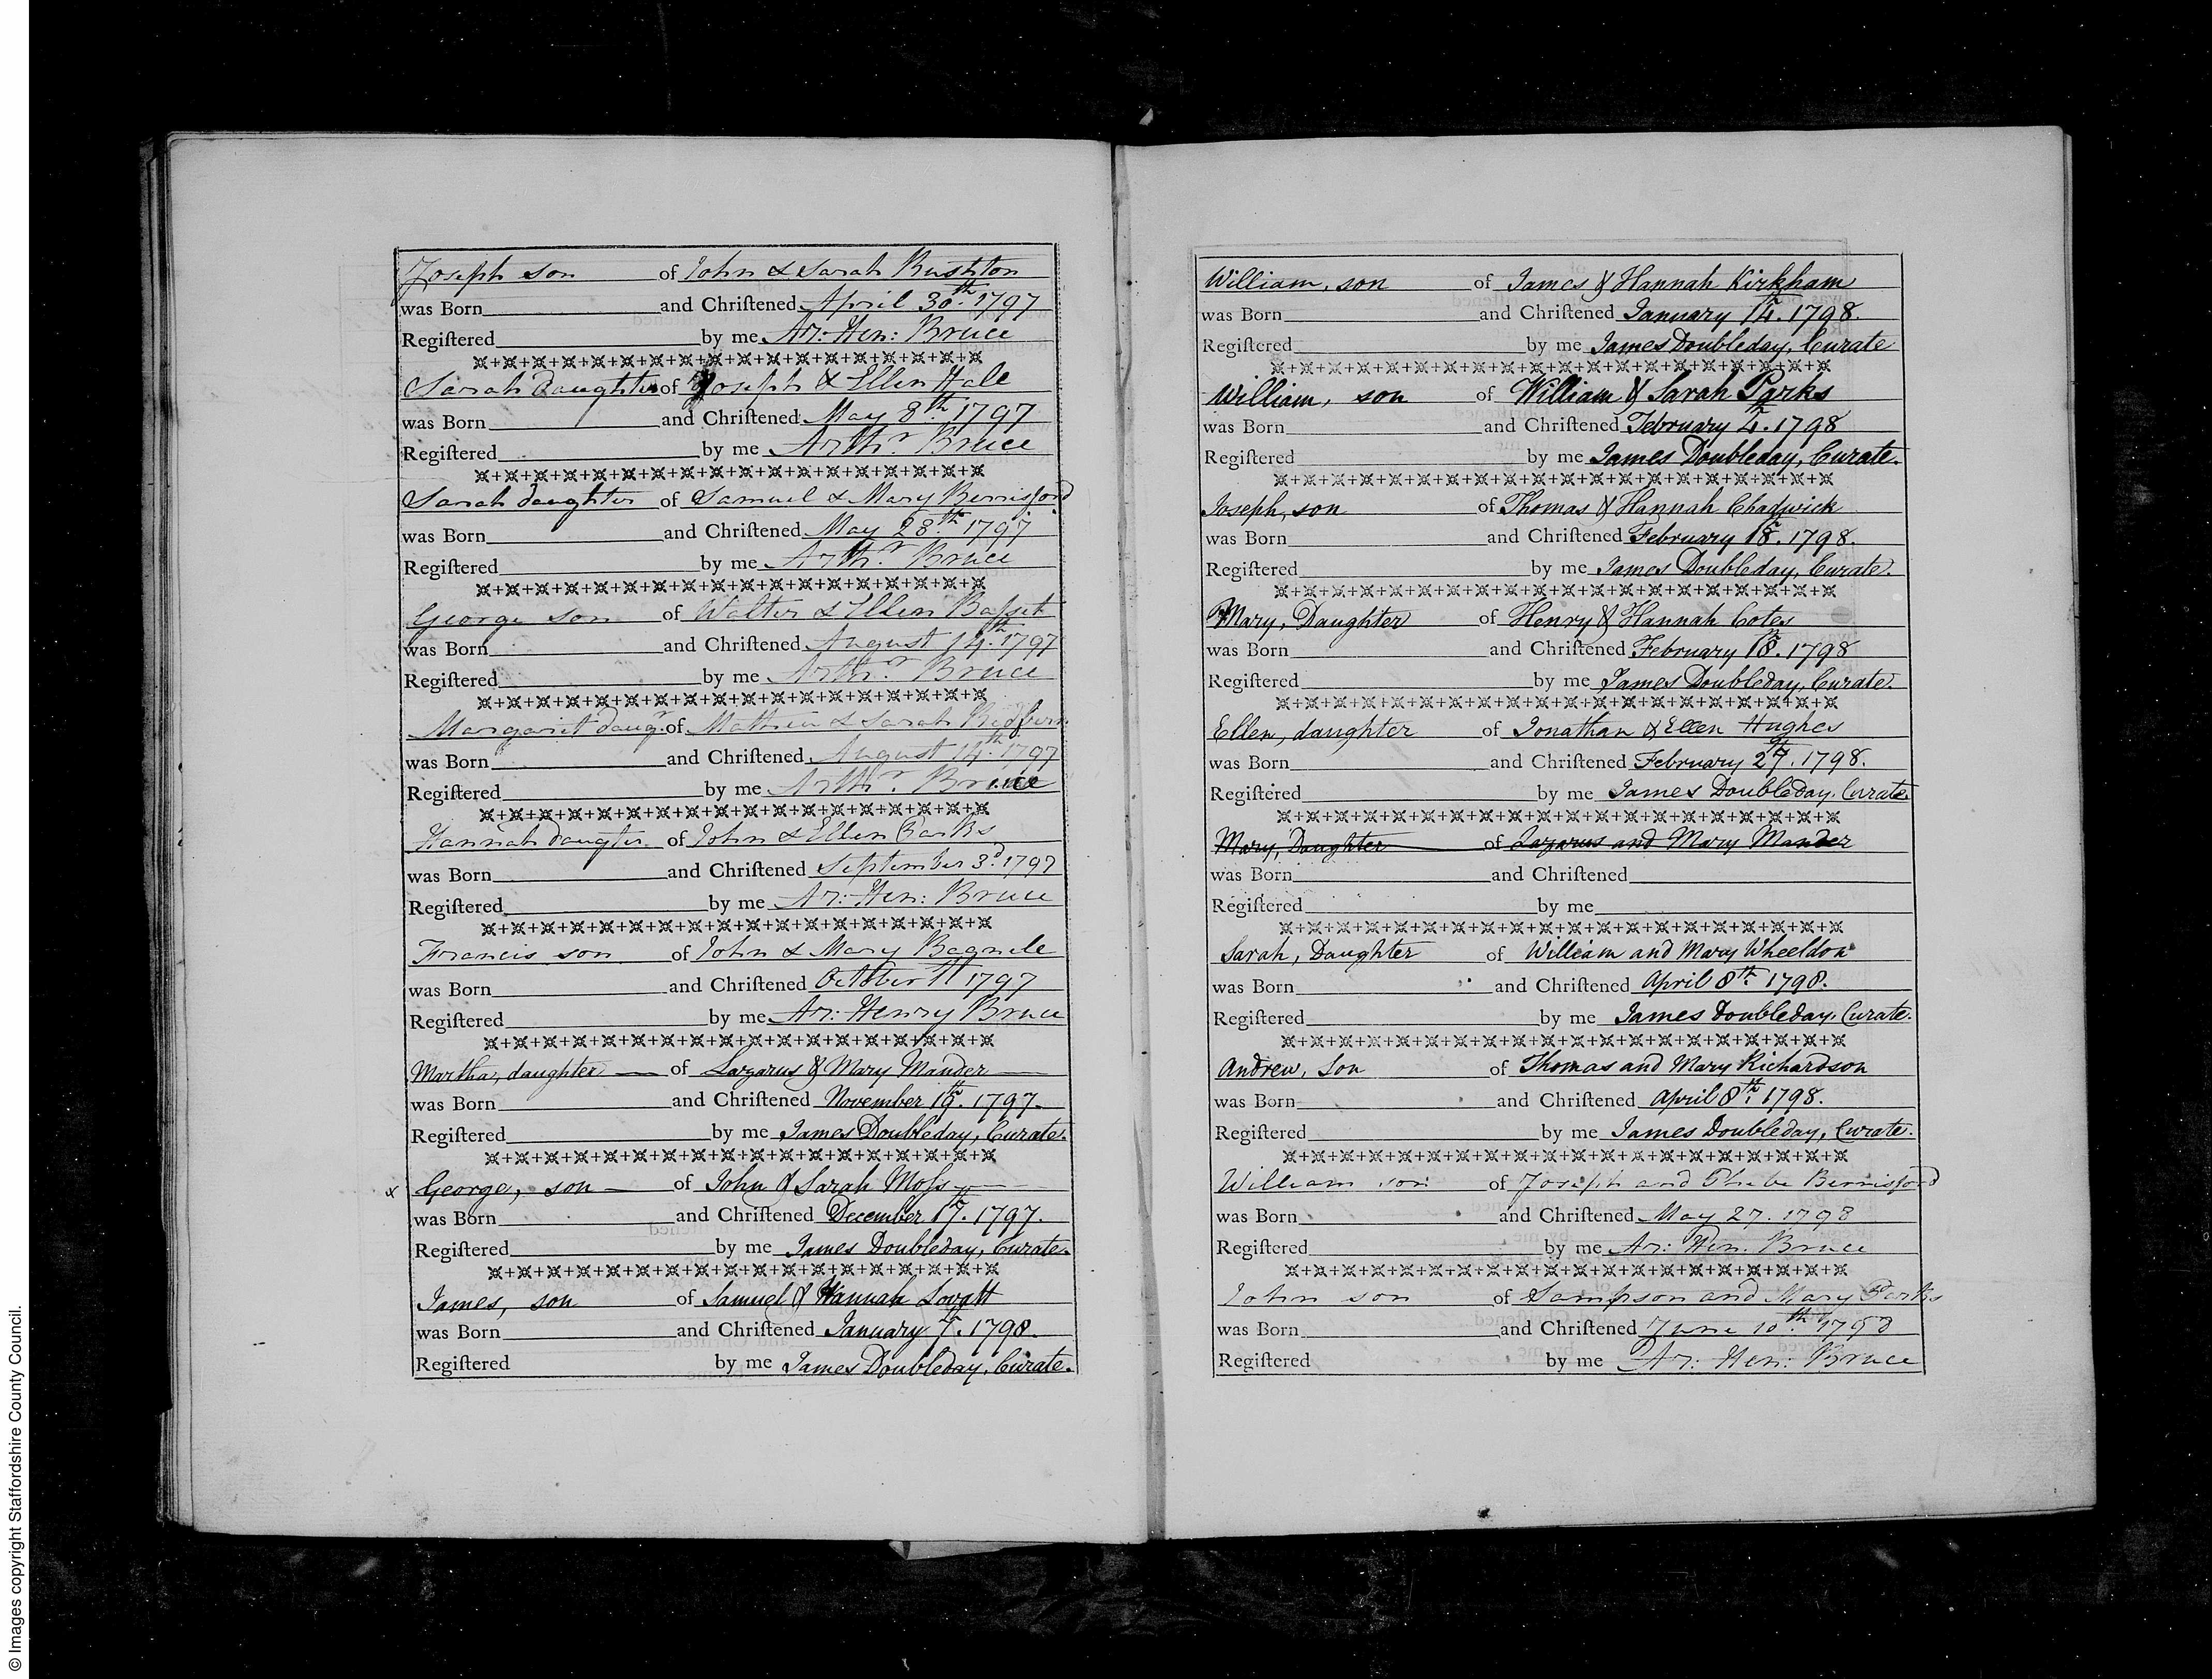 Joseph son of John & Sarah Rushton
was Born and Chriſtened April 30th. 1797
Regiſtered by me Ar: Hen: Bruce
Sarah Daughter of Joseph & Ellen Hall
was Born and Chriſtened May 8th. 1797
Regiſtered by me Arthr. Bruce
Sarah daughter of Samuel & Mary Berrisford
was Born and Chriſtened May 28th. 1797
Regiſtered by me Arthr. Bruce
George son of Walter & Ellen Baſset
was Born and Chriſtened August 14th. 1797
Regiſtered by me Arthr. Bruce
Margarit daugr. of Mathew & Sarah
was Born and Chriſtened August 14th. 1797
Regiſtered by me Arthr. Bruce
Hannah daugter of John & Ellen
was Born and Chriſtened September 3d. 1797
Regiſtered by me Ar: Hen: Bruce
Francis son of John & Mary
was Born and Chriſtened October 1797
Regiſtered by me Ar: Henry Bruce
Martha, daughter of Lazarus & Mary Mander
was Born and Chriſtened November 19th. 1797.
Regiſtered by me James Doubleday, Curate.
x George, son of John & Sarah Moſs
was Born and Chriſtened December 17th. 1797.
Regiſtered by me James Doubleday, Curate.
James, son of Samuel & Hannah Lovatt
was Born and Chriſtened January 7th. 1798.
Regiſtered by me James Doubleday, Curate.
William, son of James & Hannah Kirkham
was Born and Chriſtened January 14th. 1798.
Regiſtered by me James Doubleday, Curate
William, son of William & Sarah Parks
was Born and Chriſtened February 4th. 1798
Regiſtered by me James Doubleday, Curate.
Joseph, son of Thomas & Hannah Chadwick
was Born and Chriſtened February 18th. 1798.
Regiſtered by me James Doubleday, Curate.
Mary, Daughter of Henry & Hannah Cotes
was Born and Chriſtened February 18th. 1798
Regiſtered by me James Doubleday, Curate.
Ellen, daughter of Jonathan & Ellen Hughes
was Born and Chriſtened February 27th. 1798.
Regiſtered by me James Doubleday, Curate.
Mary, Daughter of Lazarus and Mary Mander
was Born and Chriſtened
Regiſtered by me
Sarah, Daughter of William and Mary Wheeldon
was Born and Chriſtened April 8th. 1798.
Regiſtered by me James Doubleday, Curate.
Andrew, Son of Thomas and Mary Richardson
was Born and Chriſtened April 8th. 1798.
Regiſtered by me James Doubleday, Curate.
William son of Joseph and Phebe Berrisford
was Born and Chriſtened May 27. 1798
Regiſtered by me Ar: Hen. Bruce
John son of Sampson and Mary Parks
was Born and Chriſtened June 10th. 1798
Regiſtered by me Ar: Hen: Bruce
© Images copyright Staffordshire County Council.